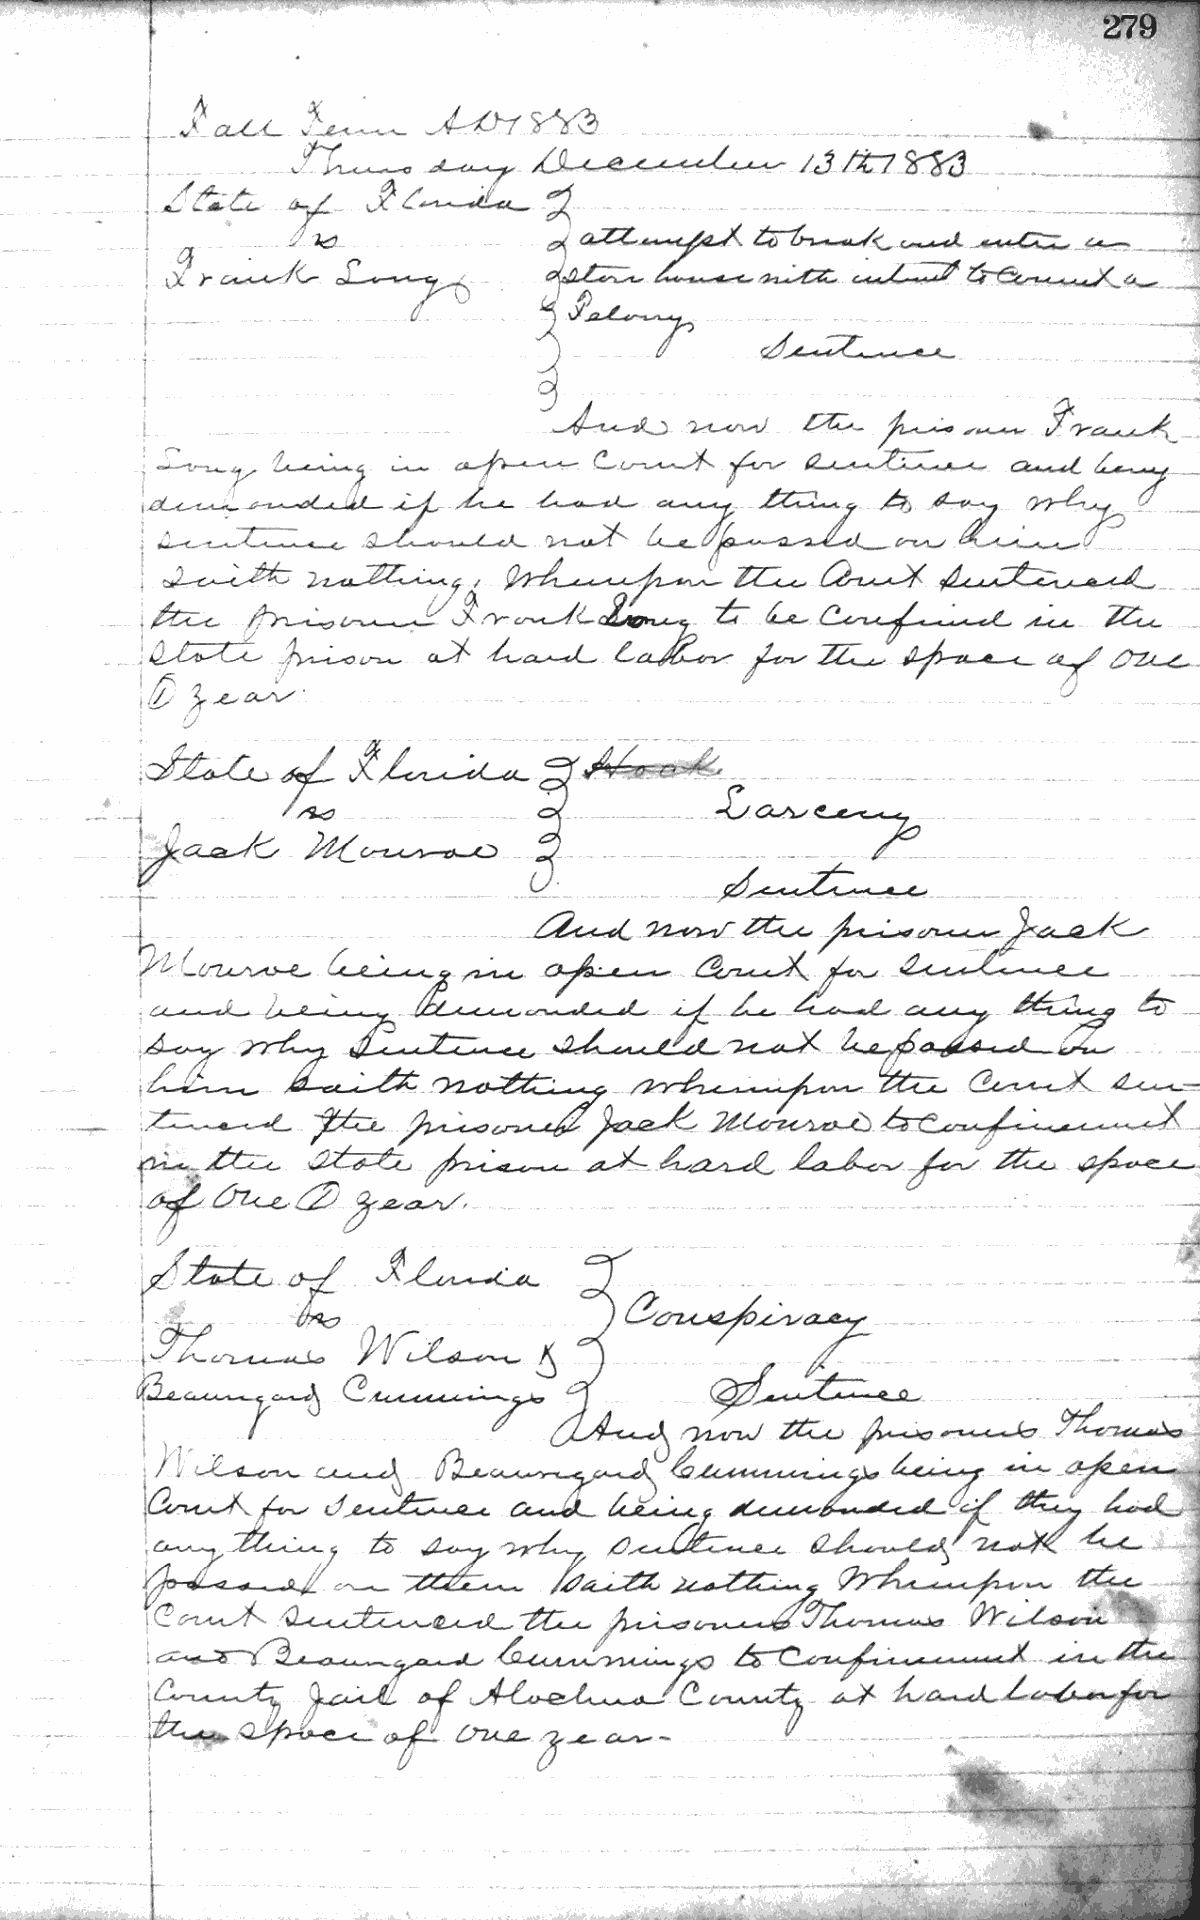 279
Fall Term AD 1883
Thursday December 13th 1883
State of Florida
vs
Frank Long
attempt to break and enter a
store house with intent to Commit a
Felony
Sentence
And now the prisoner Frank
Long being in open Court for sentence and being
demanded if he had any thing to say why
sentence should not be passed on him
saith nothing, Whereupon the Court Sentenced
the prisoner Frank Long to be Confined in the
State prison at hard labor for the space of One
① year.
State of Florida
vs
Jack Monroe
Larceny
Sentence
And now the prisoner Jack
Monroe being in open Court for sentence
and being demanded if he had any thing to
say why Sentence should not be passed on
him saith nothing whereupon the Court sen-
tenced the prisoner Jack Monroe to confinement
in the state prison at hard labor for the space
of One ① year.
State of Florida
vs
Thomas Wilson &
Beauregard Cummings
Conspiracy
Sentence
And now the prisoners Thomas
Wilson and Beauregard Cummings being in open
Court for Sentence and being demanded if they had
any thing to say why sentence should not be
passed on them saith nothing Whereupon the
Court sentenced the prisoners Thomas Wilson
and Beauregard Cummings to Confinement in the
County Jail of Alachua County at hard labor for
the space of one year-